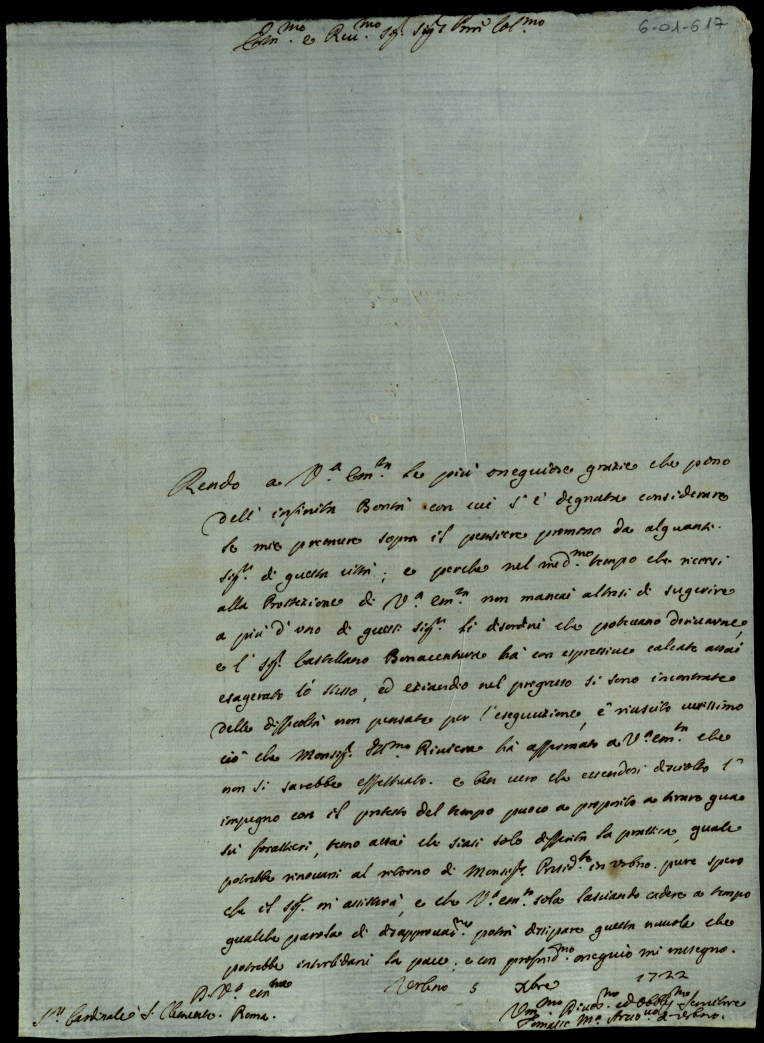 6-01-617
Em.mo e Rev.mo Sig.r Sig.r Pron Col.mo
Rendo a V.a Em.za le più ossequiose grazie che posso
dell' infinita Bontà con cui s' è degnata considerare
le mie premure sopra il pensiere promosso da alquanti
Sig.ri di questa città; e perche nel med.mo tempo che ricorsi
alla Protezione di V.a Em.za non mancai altresi di sugerire
a più d' uno di questi Sig.ri li disordini che potevano derivarne,
e l' Sig.r Castellano Bonaventura hà con espressive calcate assai
esagerato lo stesso, ed eziandio nel progresso si sono incontrate
delle difficoltà non pensate per l' esequuzione, è riuscito verissimo
ciò che Monsig.r Ill.mo Riviera hà affermato a V.a Em.za che
non si sarebbe effettuato. e ben vero che essendosi disciolto l'
impegno con il pretesto del tempo puoco a proposito a tirare qua
sù forastieri, temo assai che siasi solo differita la prattica, quale
potrebbe rinovarsi al ritorno di Monsig.r Presid.te in Urbino. pure spero
che il Sig.r m' assisterà, e che V.a Em.za sola lasciando cadere a tempo
qualche parola di disapprovaz.ne potrà dissipare questa nuvola che
potrebbe intorbidarsi la pace; e con profond.mo ossequio mi rassegno.
D. V.a Em.za Urbino 5 Xbre 1722
S.r Cardinale S. Clemente. Roma.
Um.mo Divot.mo ed Obblig.mo Servitore
Tomasso M.a Arciv.o d' Urbino.